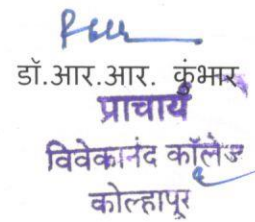 डॉ.आर.आर. कुंभार
प्राचार्य
विवेकानंद कॉलेज
कोल्हापूर